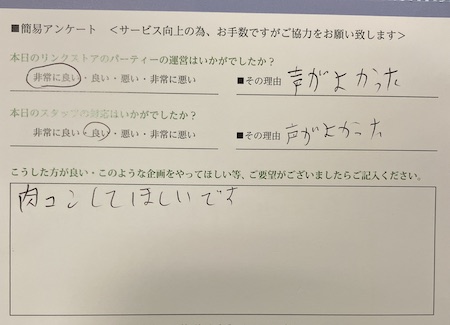 ■簡易アンケート ＜サービス向上の為、お手数ですがご協力をお願い致します＞
本日のリンクストアのパーティーの運営はいかがでしたか？
非常に良い・良い・悪い・非常に悪い ■その理由 声がよかった
本日のスタッフの対応はいかがでしたか？
非常に良い・良い・悪い・非常に悪い ■その理由 声がよかった
こうした方が良い・このような企画をやってほしい等、ご要望がございましたらご記入ください。
肉コンしてほしいです